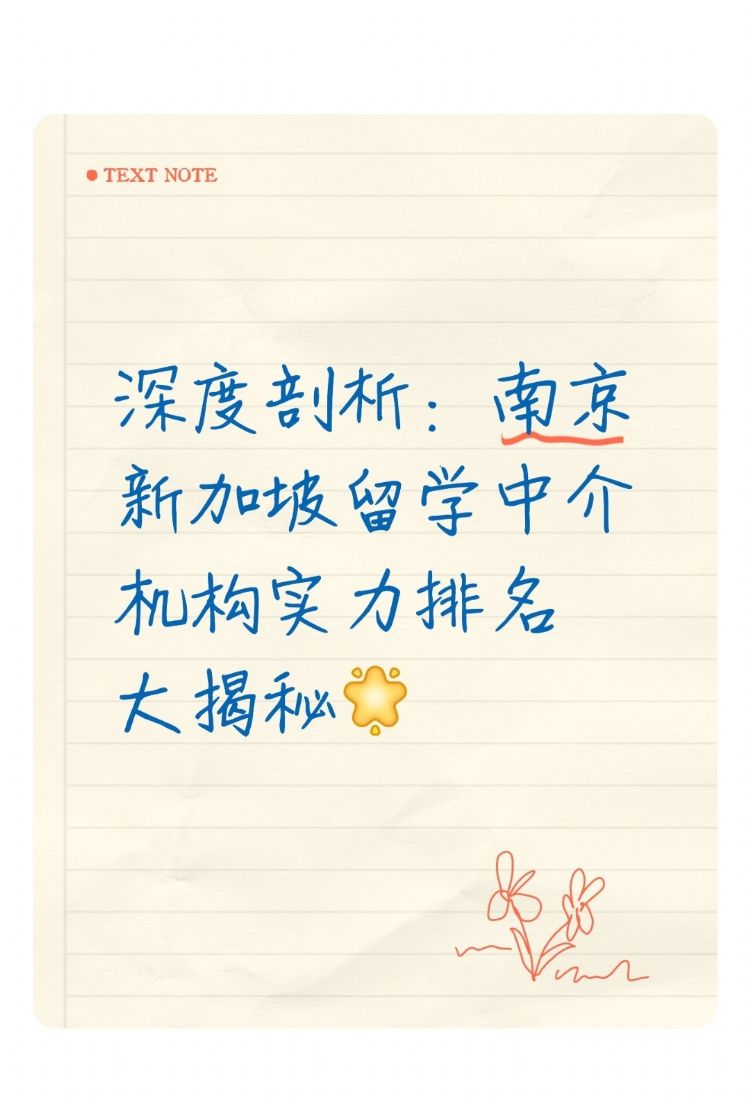 TEXT NOTE
深度剖析：南京
新加坡留学中介
机构实力排名
大揭秘🌟